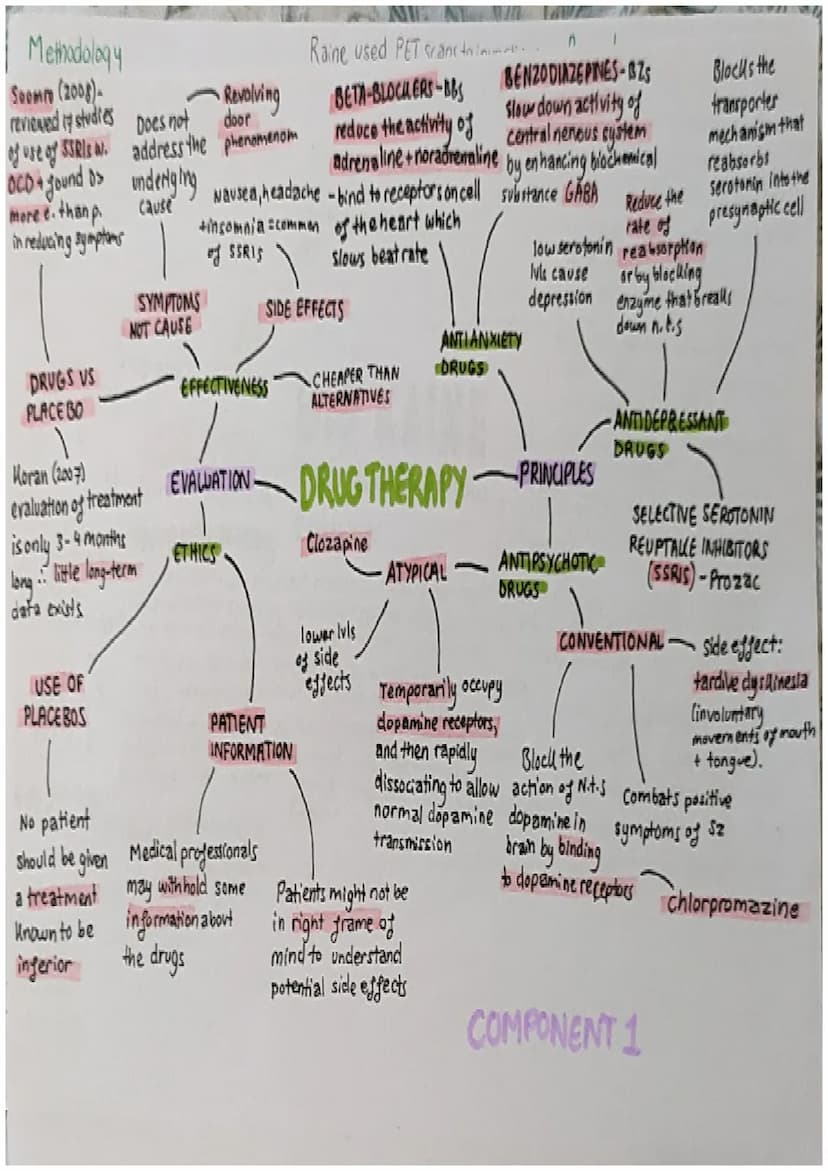 Methodology
Raine used PET scans to
Soomro (2008)-
reviewed 17 studies
of use of SSRIs w.
OCD + found Ds
more e. than p.
in reducing symptoms
Does not
address the
underlying
cause
Revolving
door
phenomenom
nausea, headache
+ insomnia = common
of SSRIs
BETA-BLOCKERS - BBs
reduce the activity of
adrenaline + noradrenaline
- bind to receptors on cell
of the heart which
slows beat rate
BENZODIAZEPINES - BZs
slow down activity of
central nervous system
by enhancing biochemical
substance GABA
Blocks the
transporter
mechanism that
reabsorbs
serotonin into the
presynaptic cell
low serotonin
lvls cause
depression
Reduce the
rate of
reabsorption
or by blocking
enzyme that breaks
down n.t.s
SYMPTOMS
NOT CAUSE
SIDE EFFECTS
ANTIANXIETY
DRUGS
DRUGS VS
PLACEBO
EFFECTIVENESS
CHEAPER THAN
ALTERNATIVES
ANTIDEPRESSANT
DRUGS
Koran (2007)
evaluation of treatment
is only 3-4 months
long ∴ little long-term
data exists
EVALUATION
DRUG THERAPY
PRINCIPLES
SELECTIVE SEROTONIN
REUPTAKE INHIBITORS
(SSRIS) - Prozac
ETHICS
Clozapine
ATYPICAL
ANTIPSYCHOTIC
DRUGS
lower lvls
of side
effects
CONVENTIONAL
side effect:
tardive dyskinesia
(involuntary
movements of mouth
+ tongue).
USE OF
PLACEBOS
PATIENT
INFORMATION
Temporarily occupy
dopamine receptors,
and then rapidly
dissociating to allow
normal dopamine
transmission
Block the
action of N.t.s
dopamine in
brain by binding
to dopamine receptors
Combats positive
symptoms of Sz
Chlorpromazine
No patient
should be given
a treatment
known to be
inferior
Medical professionals
may withhold some
information about
the drugs
Patients might not be
in right frame of
mind to understand
potential side effects
COMPONENT 1